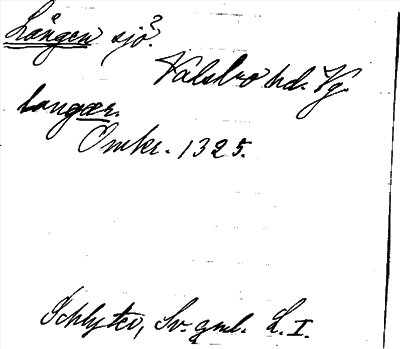 Lången sjö?
Valsbro hd. Vg.
langær.
Omkr. 1325.
Schlyter, Sv. gml. L. I.